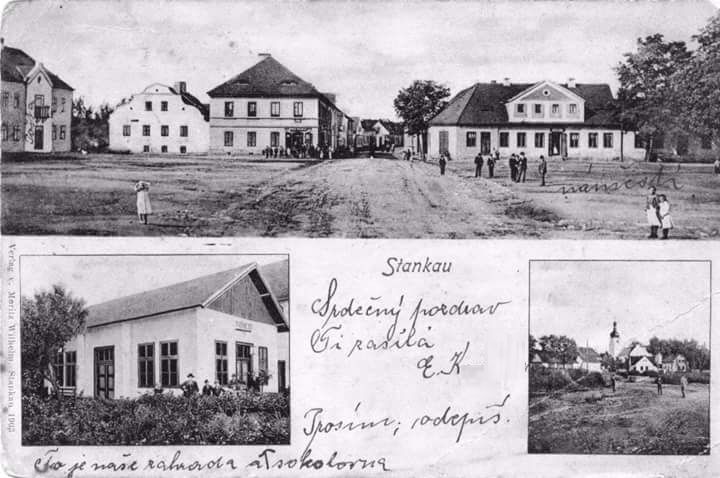 náměstí
Stankau
Srdečný pozdrav
Ti zasílá
E. K
Prosím, odepiš.
To je naše zahrada a sokolovna
Verlag v. Moritz Wilhelm, Stankau, 1905